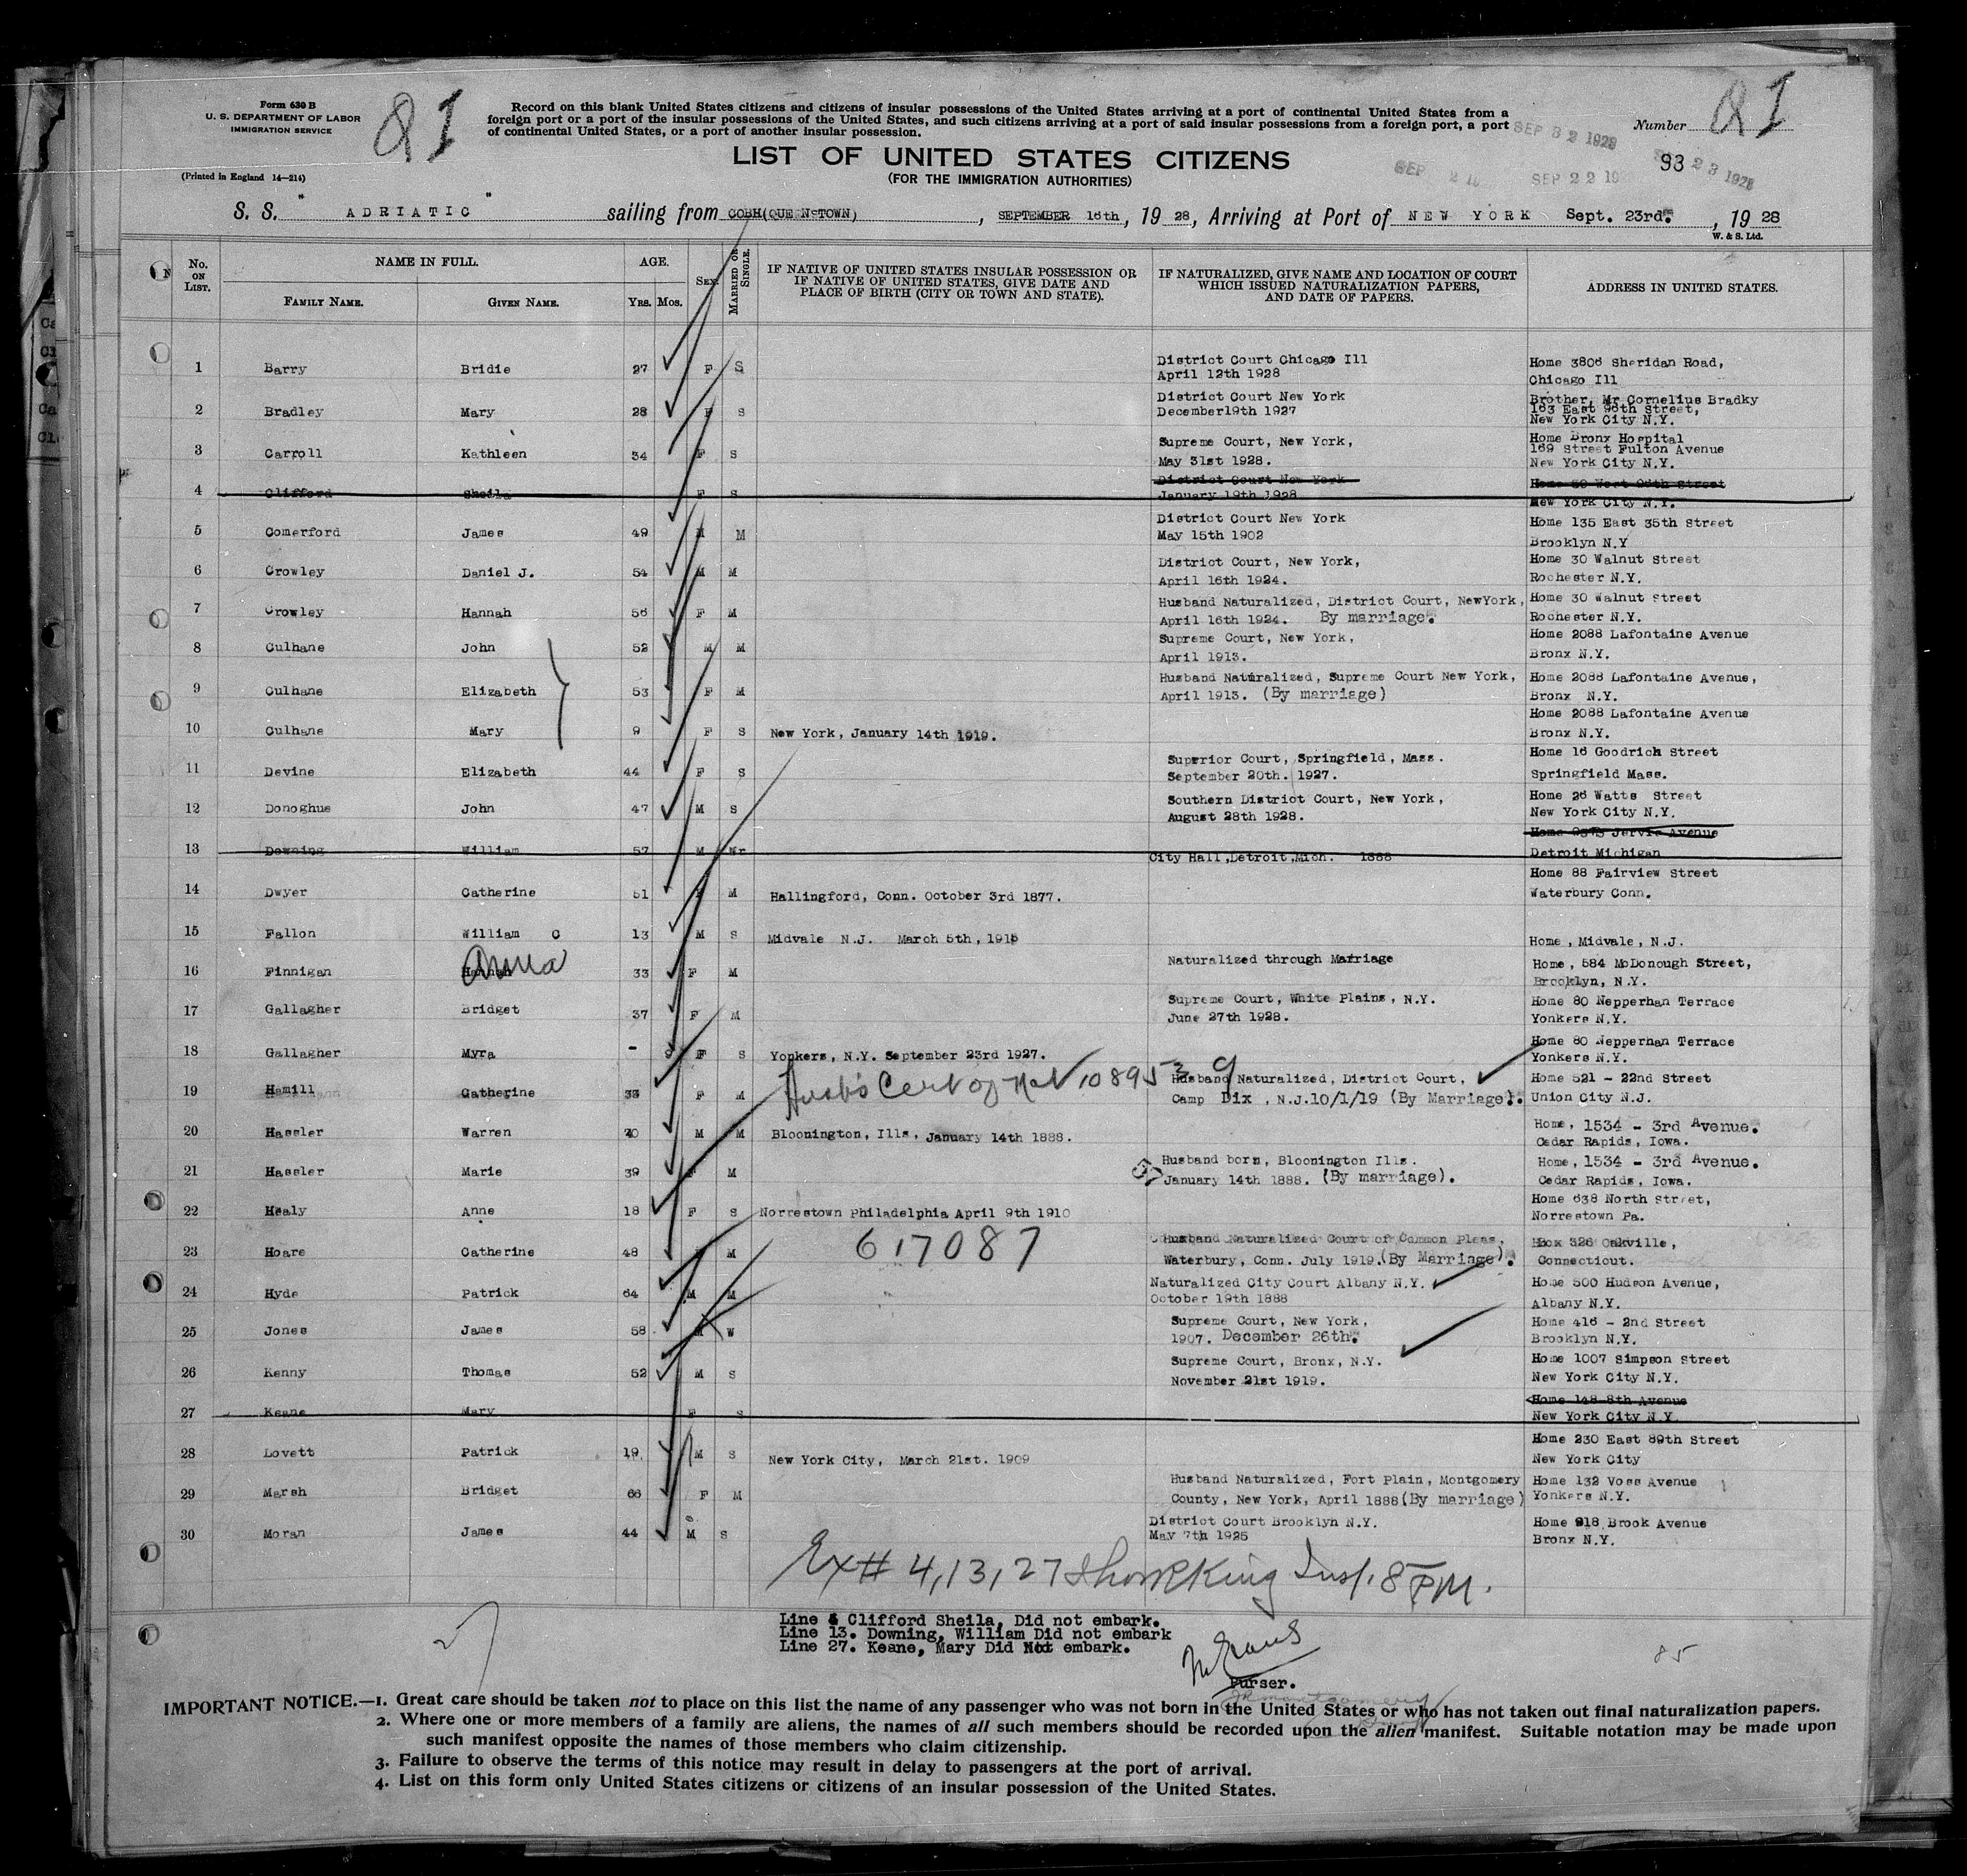 Form 630 B
U. S. DEPARTMENT OF LABOR
IMMIGRATION SERVICE
(Printed in England 14—214)
Record on this blank United States citizens and citizens of insular possessions of the United States arriving at a port of continental United States from a
foreign port or a port of the insular possessions of the United States, and such citizens arriving at a port of said insular possessions from a foreign port, a port
of continental United States, or a port of another insular possession.
Number
LIST OF UNITED STATES CITIZENS
(FOR THE IMMIGRATION AUTHORITIES)
SEP 22 19
93
S. S. " ADRIATIC " sailing from COBH(QUEENSTOWN), SEPTEMBER 16th, 19 28, Arriving at Port of NEW YORK Sept. 23rd. , 19 28
W. & S. Ltd.
No. ON LIST. NAME IN FULL. AGE. SEX. MARRIED OR SINGLE. IF NATIVE OF UNITED STATES INSULAR POSSESSION OR IF NATIVE OF UNITED STATES, GIVE DATE AND PLACE OF BIRTH (CITY OR TOWN AND STATE). IF NATURALIZED, GIVE NAME AND LOCATION OF COURT WHICH ISSUED NATURALIZATION PAPERS, AND DATE OF PAPERS. ADDRESS IN UNITED STATES.
FAMILY NAME. GIVEN NAME. YRS. MOS.
1 Barry Bridie 27 F S District Court Chicago Ill April 12th 1928 Home 3806 Sheridan Road, Chicago Ill
2 Bradley Mary 28 F S District Court New York December19th 1927 Brother, Mr Cornelius Bradky 163 East 96th Street, New York City N.Y.
3 Carroll Kathleen 34 F S Supreme Court, New York, May 31st 1928. Home Bronx Hospital 169 Street Fulton Avenue New York City N.Y.
4 Clifford Sheila F S District Court New York January 19th 1928 Home West Street New York City N.Y.
5 Comerford James 49 M M District Court New York May 15th 1902 Home 135 East 35th Street Brooklyn N.Y
6 Crowley Daniel J. 54 M M District Court, New York, April 16th 1924. Home 30 Walnut Street Rochester N.Y.
7 Crowley Hannah 56 F M Husband Naturalized, District Court, NewYork, April 16th 1924. By marriage. Home 30 Walnut Street Rochester N.Y.
8 Culhane John 52 M M Supreme Court, New York, April 1913. Home 2088 Lafontaine Avenue Bronx N.Y.
9 Culhane Elizabeth 53 F M Husband Naturalized, Supreme Court New York, April 1913. (By marriage) Home 2088 Lafontaine Avenue, Bronx N.Y.
10 Culhane Mary 9 F S New York, January 14th 1919. Home 2088 Lafontaine Avenue Bronx N.Y.
11 Devine Elizabeth 44 F S Superior Court, Springfield, Mass. September 20th. 1927. Home 16 Goodrich Street Springfield Mass.
12 Donoghue John 47 M S Southern District Court, New York, August 28th 1928. Home 26 Watts Street New York City N.Y.
13 Downing William 57 M Mr City Hall,Detroit,Mich. 1888 Home Jervis Avenue Detroit Michigan
14 Dwyer Catherine 51 F M Hallingford, Conn. October 3rd 1877. Home 88 Fairview Street Waterbury Conn.
15 Fallon William C 13 M S Midvale N.J. March 5th, 1915 Home, Midvale, N.J.
16 Finnigan Hannah Anna 33 F M Naturalized through Marriage Home, 584 McDonough Street, Brooklyn, N.Y.
17 Gallagher Bridget 37 F M Supreme Court, White Plains, N.Y. June 27th 1928. Home 80 Nepperhan Terrace Yonkers N.Y.
18 Gallagher Myra - F S Yonkers, N.Y. September 23rd 1927. Home 80 Nepperhan Terrace Yonkers N.Y.
Husb's Cert of Nat 1089539
19 Hamill Catherine 33 F M Husband Naturalized, District Court, Camp Dix, N.J.10/1/19 (By Marriage). Home 521 - 22nd Street Union City N.J.
20 Hassler Warren 40 M M Bloonington, Ills, January 14th 1888. Home, 1534 - 3rd Avenue. Cedar Rapids, Iowa.
21 Hassler Marie 39 F M Husband born, Bloonington Ills. January 14th 1888. (By marriage). Home, 1534 - 3rd Avenue. Cedar Rapids, Iowa.
22 Healy Anne 18 F S Norrestown Philadelphia April 9th 1910 Home 638 North Street, Norrestown Pa.
23 Hoare Catherine 48 F M 617087 Husband Naturalized Court of Common Pleas, Waterbury, Conn. July 1919.(By Marriage). Box 326 Oakville, Connecticut.
24 Hyde Patrick 64 M M Naturalized City Court Albany N.Y. October 19th 1888 Home 500 Hudson Avenue, Albany N.Y.
25 Jones James 58 M W Supreme Court, New York, 1907. December 26th. Home 416 - 2nd Street Brooklyn N.Y.
26 Kenny Thomas 52 M S Supreme Court, Bronx, N.Y. November 21st 1919. Home 1007 Simpson Street New York City N.Y.
27 Keane Mary F S Home 148 8th Avenue New York City N.Y.
28 Lovett Patrick 19 M S New York City, March 21st. 1909 Home 230 East 89th Street New York City
29 Marsh Bridget 66 F M Husband Naturalized, Fort Plain, Montgomery County, New York, April 1888(By marriage) Home 132 Voss Avenue Yonkers N.Y.
30 Moran James 44 M S District Court Brooklyn N.Y. May 7th 1925 Home 918 Brook Avenue Bronx N.Y.
Ex# 4,13,27 King Insp. 8 PM.
Line 4 Clifford Sheila, Did not embark.
Line 13. Downing, William Did not embark
Line 27. Keane, Mary Did Not embark.
Purser.
85
IMPORTANT NOTICE.—1. Great care should be taken not to place on this list the name of any passenger who was not born in the United States or who has not taken out final naturalization papers.
2. Where one or more members of a family are aliens, the names of all such members should be recorded upon the alien manifest. Suitable notation may be made upon
such manifest opposite the names of those members who claim citizenship.
3. Failure to observe the terms of this notice may result in delay to passengers at the port of arrival.
4. List on this form only United States citizens or citizens of an insular possession of the United States.